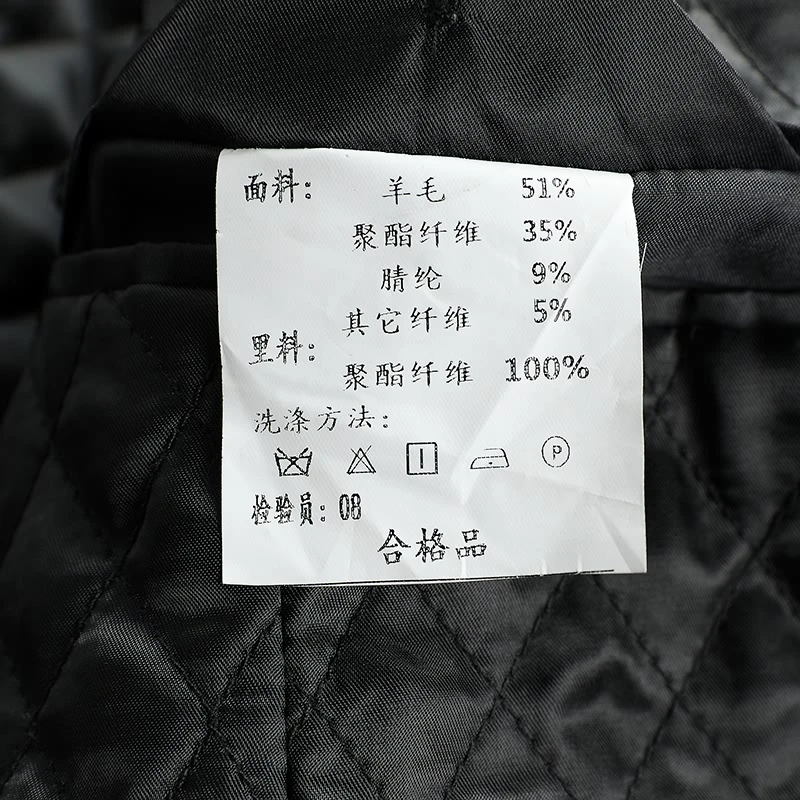 面料: 羊毛 51%
聚酯纤维 35%
腈纶 9%
其它纤维 5%
里料: 聚酯纤维 100%
洗涤方法:
P
检验员: 08
合格品